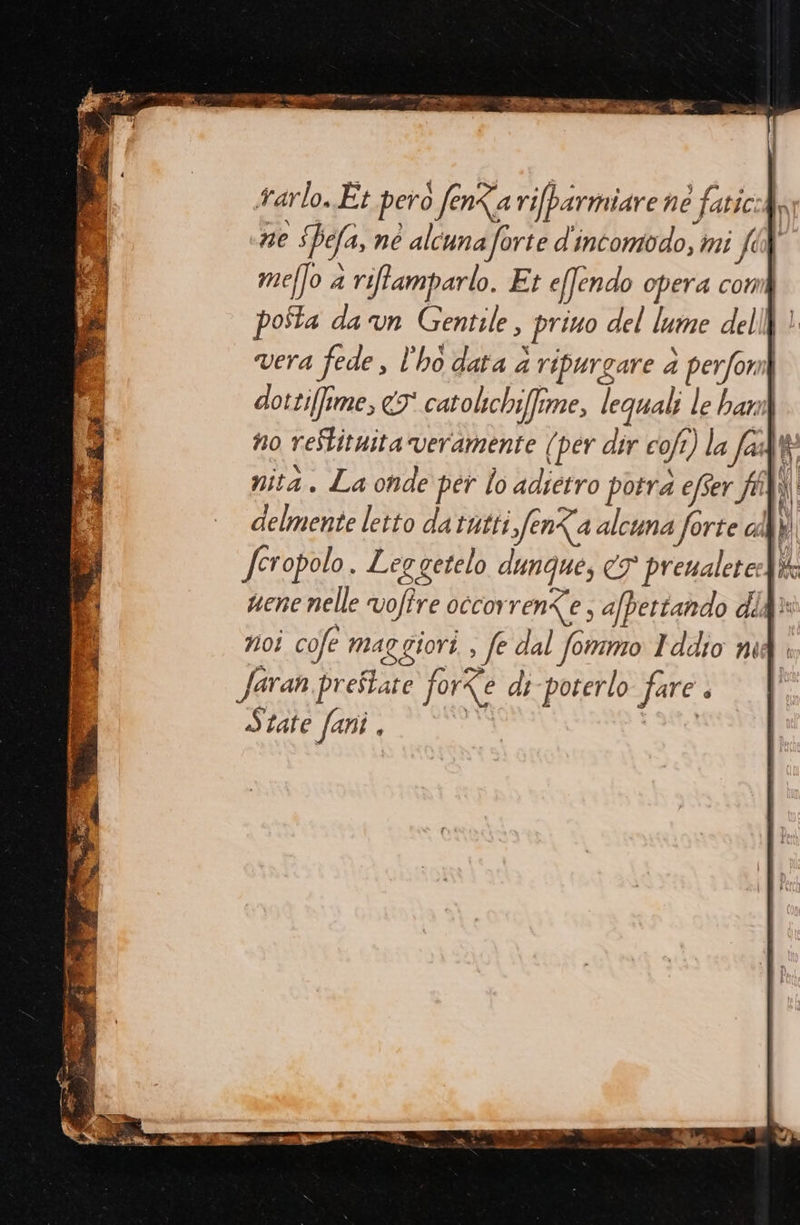 rarlo. Et però ſenza riſparmiare nè
ne ſpeſa, nè alcuna ſorte d'incomodo, mi
meſſo à riſtamparlo. Et eſſendo opera com
poſta da vn Gentile, priuo del lume
vera fede, l'hò data à ripurgare à perſon
dottiſſime, & catolichiſſime, lequali le han
no reſtituita veramente (per dir coſi) la
nità. La onde per lo adietro potrà eſſer
delmente letto da tutti, ſenza alcuna ſorte
ſcropolo. Leggetelo dunque, & preualete
uene nelle voſtre occorrenze, aſpettando
noi coſe maggiori, ſe dal ſommo Iddio
ſaran preſtate forze di poterlo fare.
State ſani.